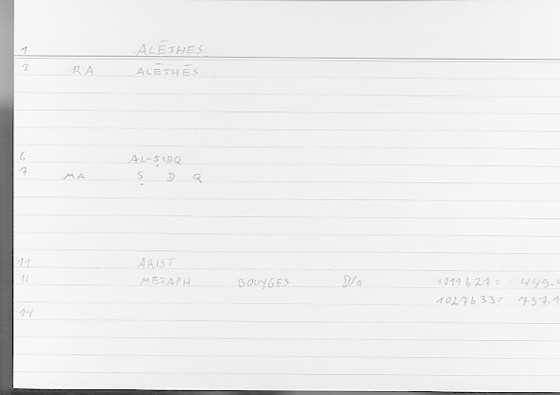 1 ALĒTHES
2 RA ALĒTHĒS
6 AL-ṢIDQ
7 MA Ṣ D Q
11 ARIST
12 METAPH BOUYGES 1011b27=
1027b33= 737.1
14